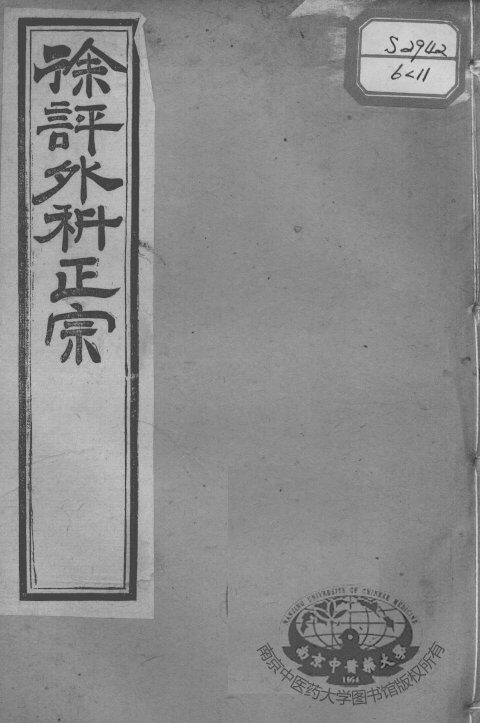 徐評外科正宗
S2942
6<11
NANJING UNIVERSITY OF CHINESE MEDICINE
南京中醫藥大學
1954
南京中医药大学图书馆版权所有